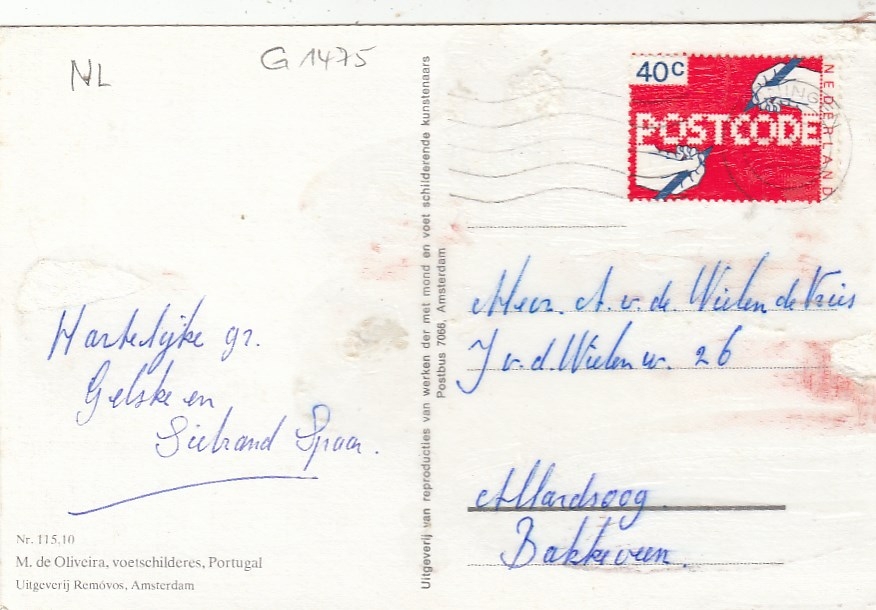 NL
G 1475
40c
POSTCODE
NEDERLAND
Hartelijke gr.
Gelske en
Siebrand Spaar.
Nr. 115.10
M. de Oliveira, voetschilderes, Portugal
Uitgeverij Removos, Amsterdam
Uitgeverij van reproducties van werken der met mond en voet schilderende kunstenaars
Postbus 7068, Amsterdam
Mevr. A. v. de Wielen de Vries
J v. d. Wielen w. 26
Allardsoog
Bakkeveen.